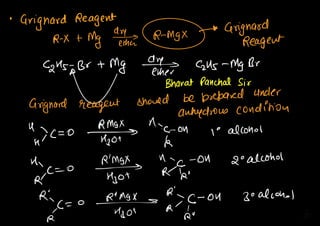 • Grignard Reagent
R-X + Mg dry ether → R-MgX → Grignard Reagent
C2H5-Br + Mg dry ether → C2H5-MgBr
Bharat Panchal Sir
Grignard reagent should be prepared under
anhydrous condition
H H C=O RMgX H3O+ → H R C-OH 1° alcohol
H R C=O R'MgX H3O+ → H R C-OH 2° alcohol
R' R C=O R"MgX H3O+ → R' R C-OH R" 3° alcohol